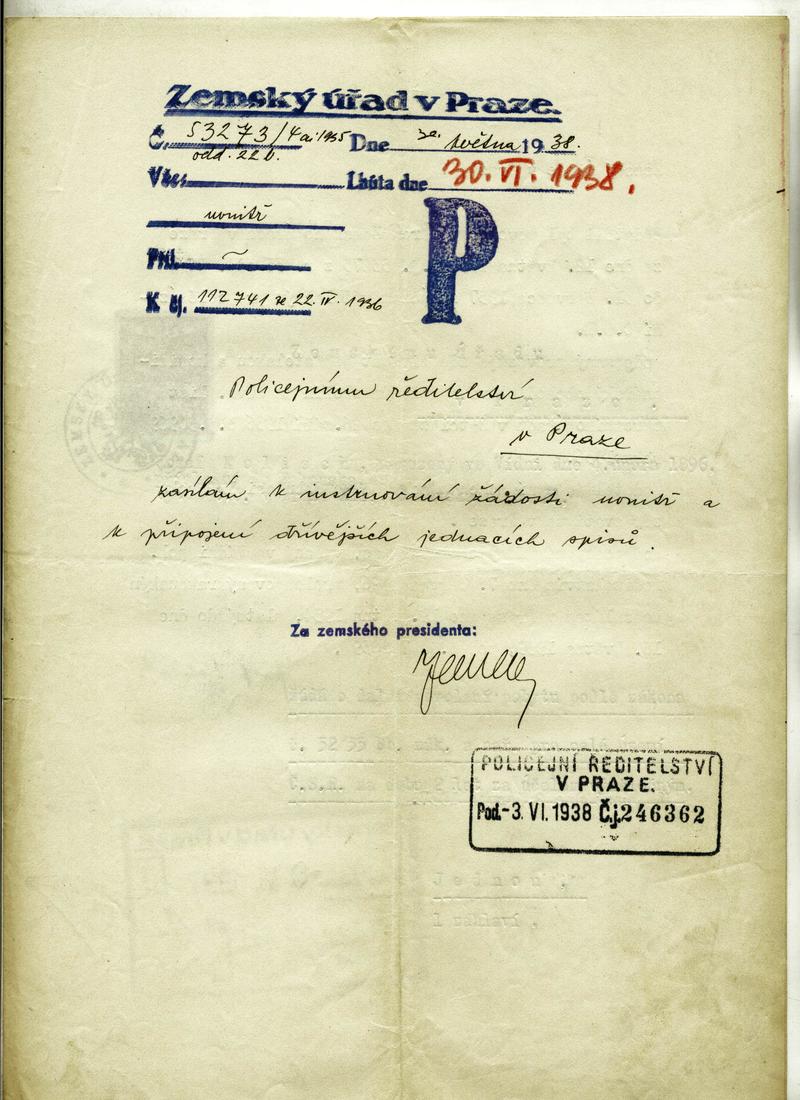 Zemský úřad v Praze.
Č. 53273/4 ai 1935 Dne května 1938.
odd. 22 b.
Věc: Lhůta dne 30. VI. 1938.
uvnitř
Příl. ~
K čj. 112741 ze 22. IV. 1936
P
Policejnímu ředitelství
v Praze
zasílám k instruování žádosti uvnitř a
k připojení dřívějších jednacích spisů.
Za zemského presidenta:
POLICEJNÍ ŘEDITELSTVÍ
V PRAZE.
Pod. -3. VI. 1938 Č.j. 246362